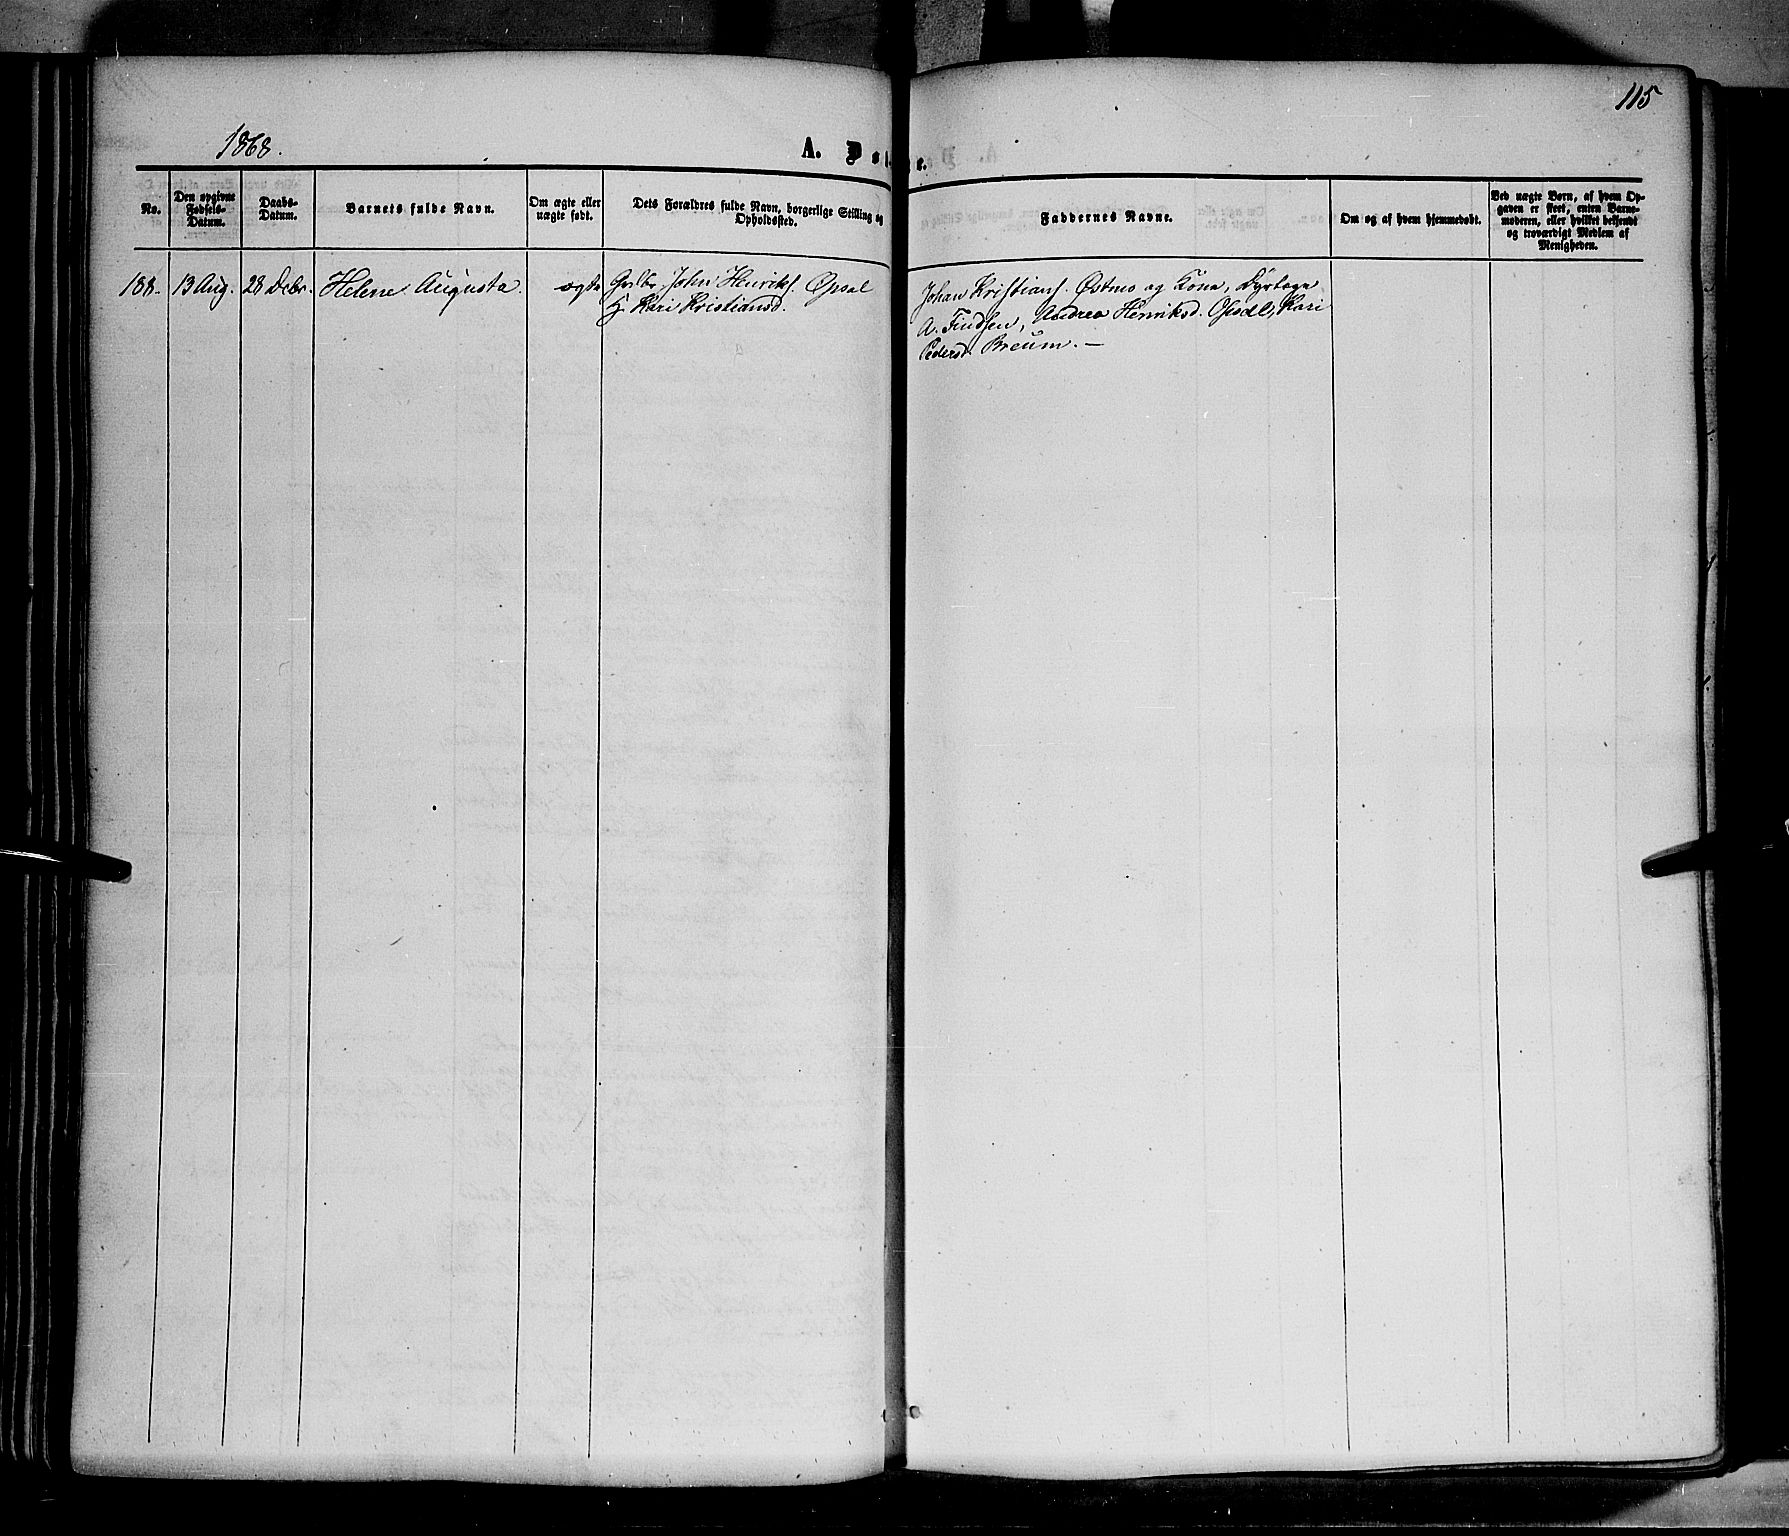 115
1868.
A. Døbte.
No.
Den opgivne Fødsels-Datum.
Daabs-Datum.
Barnets fulde Navn.
Om ægte eller uægte født.
Dets Forældres fulde Navn, borgerlige Stilling og Opholdssted.
Faddernes Navne.
Om og af hvem hjemmedøbt.
Ved uægte Børn, af hvem Opgaven er skeet, enten Barnemoderen, eller hvilket bekjendt og troværdigt Medlem af Menigheden.
188. 13 Aug. 28 Debr. Helene Augusta. ægte Grdbr. John Henriks. Opsal
H. Kari Kristiansd.
Johan Kristians. Østmo og Kone,
A. Findsen, Andrea Henriksd. Opsal, Kari
Pedersd. Breum. —